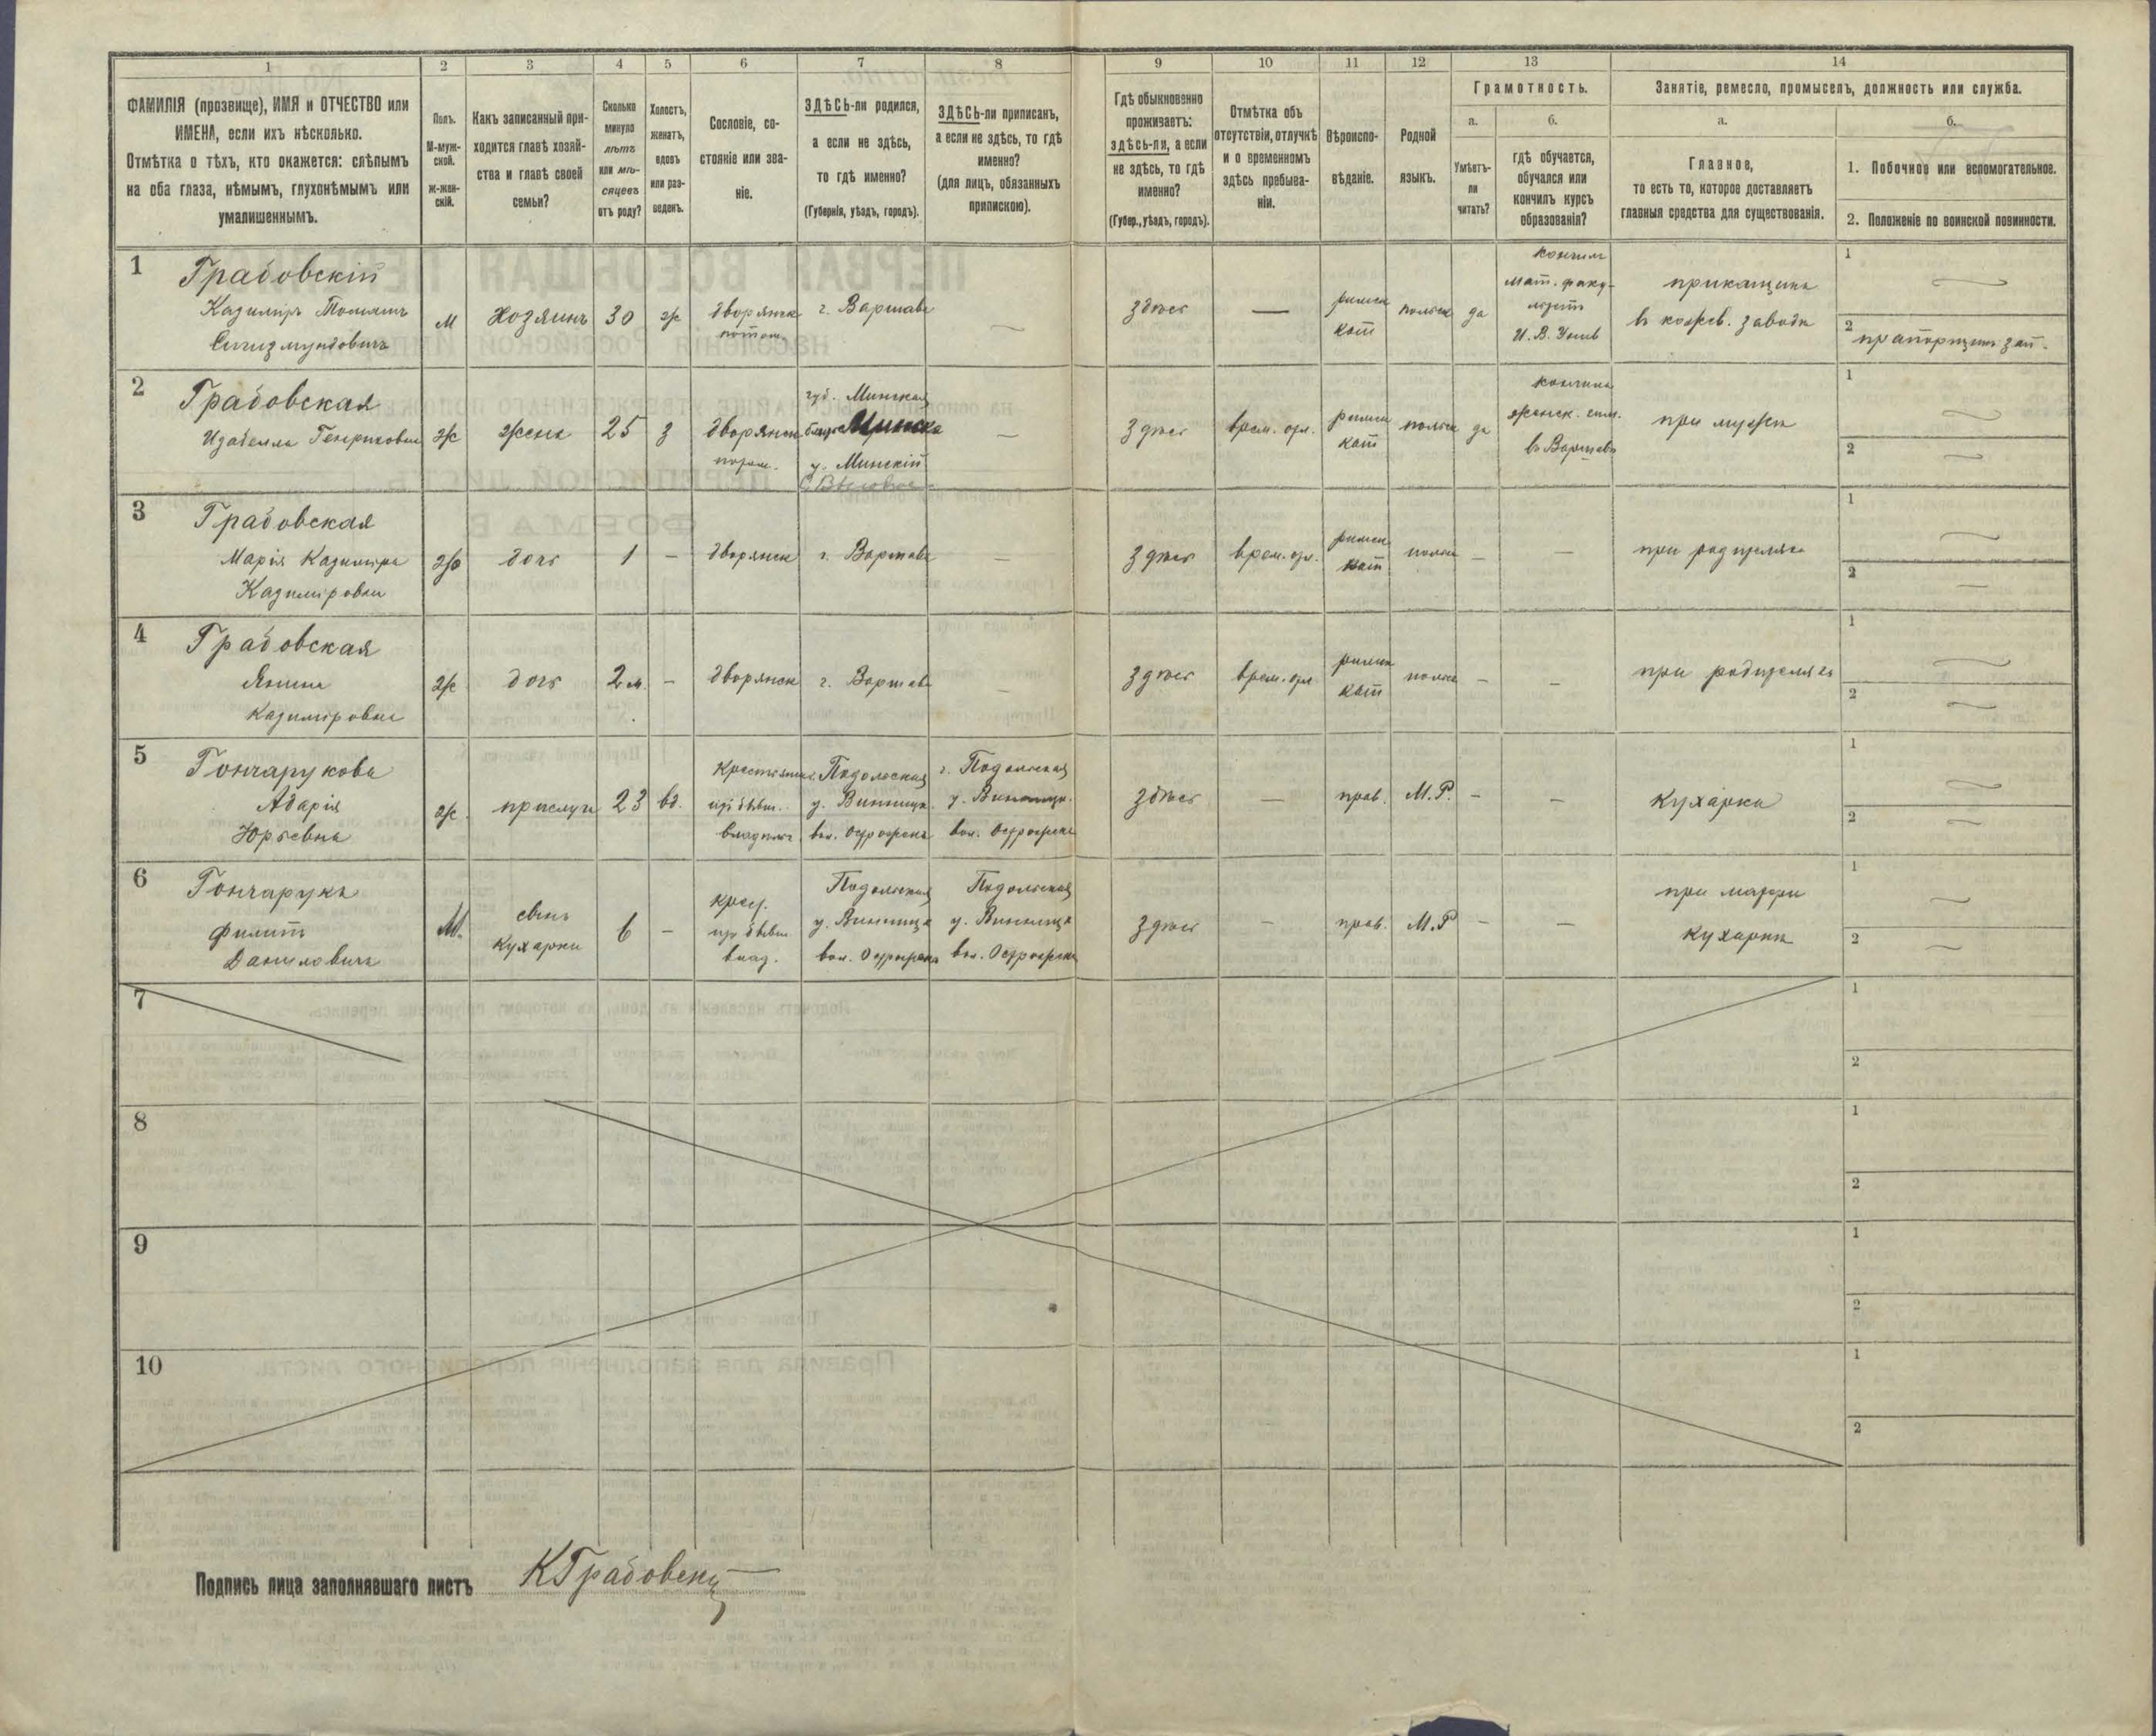 1
2
3
4
5
6
7
8
9
10
11
12
13
14
ФАМИЛІЯ (прозвище), ИМЯ и ОТЧЕСТВО или
ИМЕНА, если ихъ нѣсколько.
Отмѣтка о тѣхъ, кто окажется: слѣпымъ
на оба глаза, нѣмымъ, глухонѣмымъ или
умалишеннымъ.
Полъ.
М-муж-
ской.
ж-жен-
скій.
Какъ записанный при-
ходится главѣ хозяй-
ства и главѣ своей
семьи?
Сколько
минуло
лѣтъ
или мѣ-
сяцевъ
отъ роду?
Холостъ,
женатъ,
вдовъ
или раз-
веденъ.
Сословіе, со-
стояніе или зва-
ніе.
ЗДѢСЬ-ли родился,
а если не здѣсь,
то гдѣ именно?
(Губернія, уѣздъ, городъ).
ЗДѢСЬ-ли приписанъ,
а если не здѣсь, то гдѣ
именно?
(для лицъ, обязанныхъ
припискою).
Гдѣ обыкновенно
проживаетъ:
здѣсь-ли, а если
не здѣсь, то гдѣ
именно?
(Губер., уѣздъ, городъ).
Отмѣтка объ
отсутствіи, отлучкѣ
и о временномъ
здѣсь пребыва-
ніи.
Вѣроиспо-
вѣданіе.
Родной
языкъ.
Грамотность.
а.
Умѣетъ-
ли
читать?
б.
гдѣ обучается,
обучался или
кончилъ курсъ
образованія?
Занятіе, ремесло, промыселъ, должность или служба.
а.
Главное,
то есть то, которое доставляетъ
главныя средства для существованія.
б.
1. Побочное или вспомогательное.
2. Положеніе по воинской повинности.
1
Грабовскій
Казиміръ
Сигизмундовичъ
м
хозяинъ
30
ж
дворянск
потом.
г. Варшава
—
здѣсь
—
римск
кат
польск
да
кончил
мат. факу-
льтет
И. В. Унив
прикащикъ
въ кожев. заводѣ
1
2
прапорщикъ зап.
2
Грабовская
Изабелла Генриховна
ж
жена
25
з
дворянск
потом.
губ. Минская
Минскъ
у. Минскій
—
здѣсь
врем. отл.
римск
кат
польск
да
кончила
женск. гим.
въ Варшавѣ
при мужѣ
1
2
3
Грабовская
Марія Казиміра
Казиміровна
ж
дочь
1
—
дворянск
г. Варшава
—
здѣсь
врем. отл.
римск
кат
польск
—
—
при родителяхъ
1
2
4
Грабовская
Янина
Казиміровна
ж
дочь
2 м.
—
дворянск
г. Варшава
—
здѣсь
врем. отл
римск
кат
польск
—
—
при родителяхъ
1
2
5
Гончарукова
Адарія
Юрьевна
ж
прислуга
23
вд.
Крестьянка
изъ бывш.
владѣльч.
г. Подольская
у. Винница
вол. Острожска
г. Подольская
у. Винница
вол. Острожска
здѣсь
—
прав.
М. Р.
—
—
кухарка
1
2
6
Гончарукъ
Филиппъ
Даниловичъ
М.
сынъ
кухарки
6
—
крест.
изъ бывш
влад.
Подольская
у. Винница
вол. Острожска
Подольская
у. Винница
вол. Острожска
здѣсь
—
прав.
М. Р
—
—
при матери
кухаркѣ
1
2
7
1
2
8
1
2
9
1
2
10
1
2
Подпись лица заполнявшаго листъ
КГрабовскій